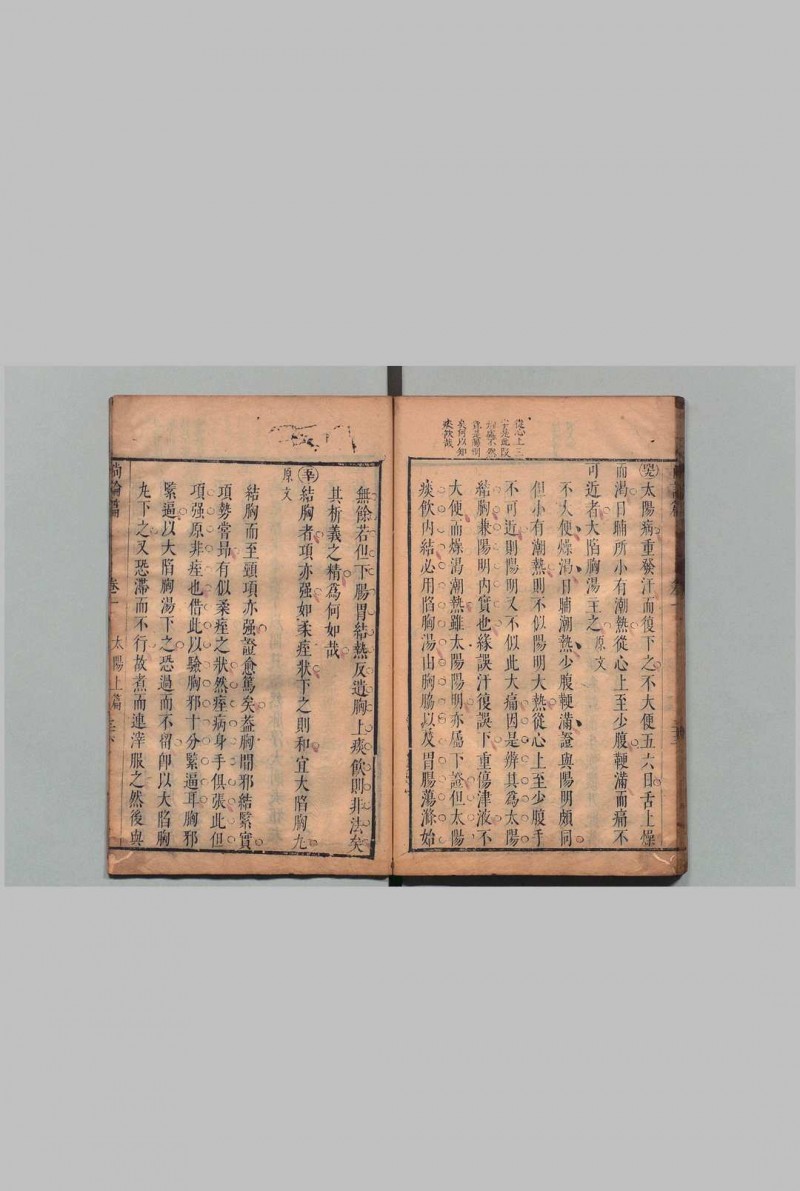 太陽病重發汗而復下之不大便五六日舌上燥
而渴日晡所小有潮熱從心上至少腹鞕滿而痛不
可近者大陷胸湯主之 原文
不大便燥渴日晡潮熱少腹鞕滿證與陽明頗同
但小有潮熱則不似陽明大熱從心上至少腹手
不可近則陽明又不似此大痛因是辨其為太陽
結胸兼陽明內實也緣誤汗復誤下重傷津液不
大便而燥渴潮熱雖太陽陽明亦屬下證但太陽
痰飲內結必用陷胸湯由胸脇以及胃腸蕩滌始
從心上三
痰飲哉
無餘若但下腸胃結熱反遺胸上痰飲則非法矣
其析義之精為何如哉
結胸者項亦强如柔痓狀下之則和宜大陷胸丸
原文
結胸而至頸項亦强證愈篤矣葢胸間邪結緊實
項勢常昂有似柔痓之狀然痓病身手俱張此但
項强原非痓也借此以驗胸邪十分緊逼耳胸邪
緊逼以大陷胸湯下之恐過而不留卽以大陷胸
丸下之又恐滯而不行故煮而連滓服之然後與
尚論篇 卷一 太陽上篇